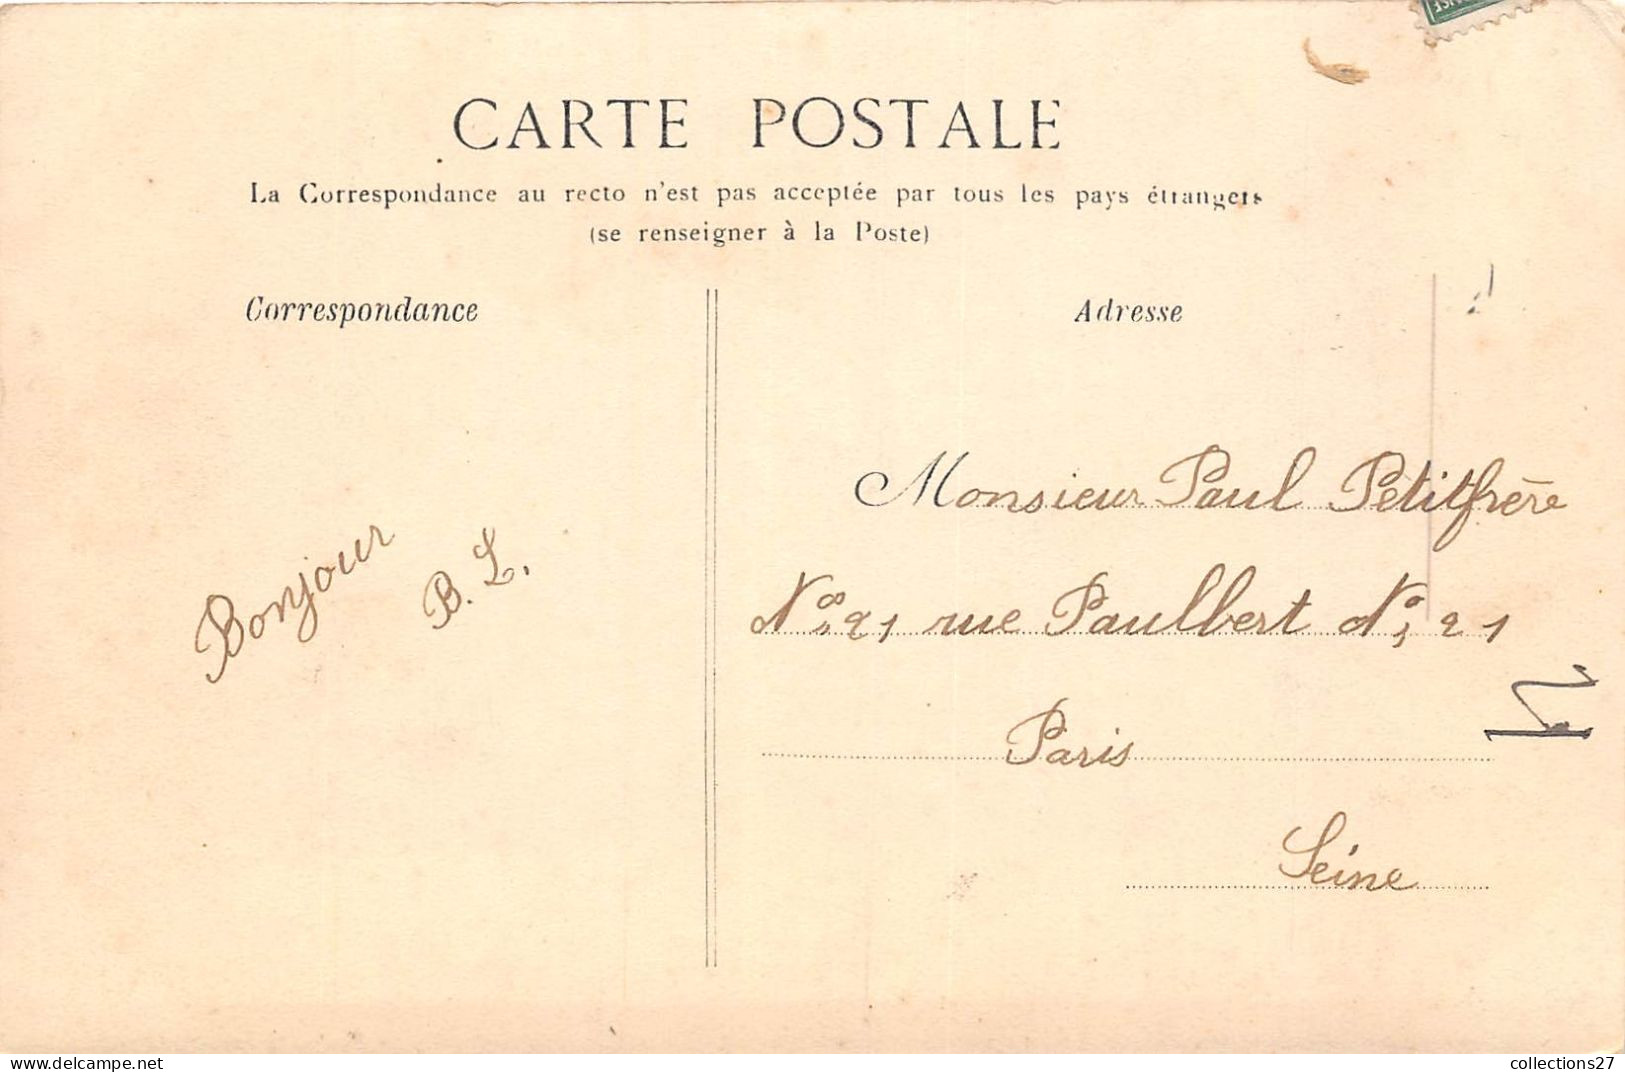 CARTE POSTALE
La Correspondance au recto n'est pas acceptée par tous les pays étrangers
(se renseigner à la Poste)
Correspondance
Adresse
Bonjour
B. L.
Monsieur Paul Petitfrère
21 rue Paulbert N° 21
Paris
Seine
www.delcampe.net
collections27